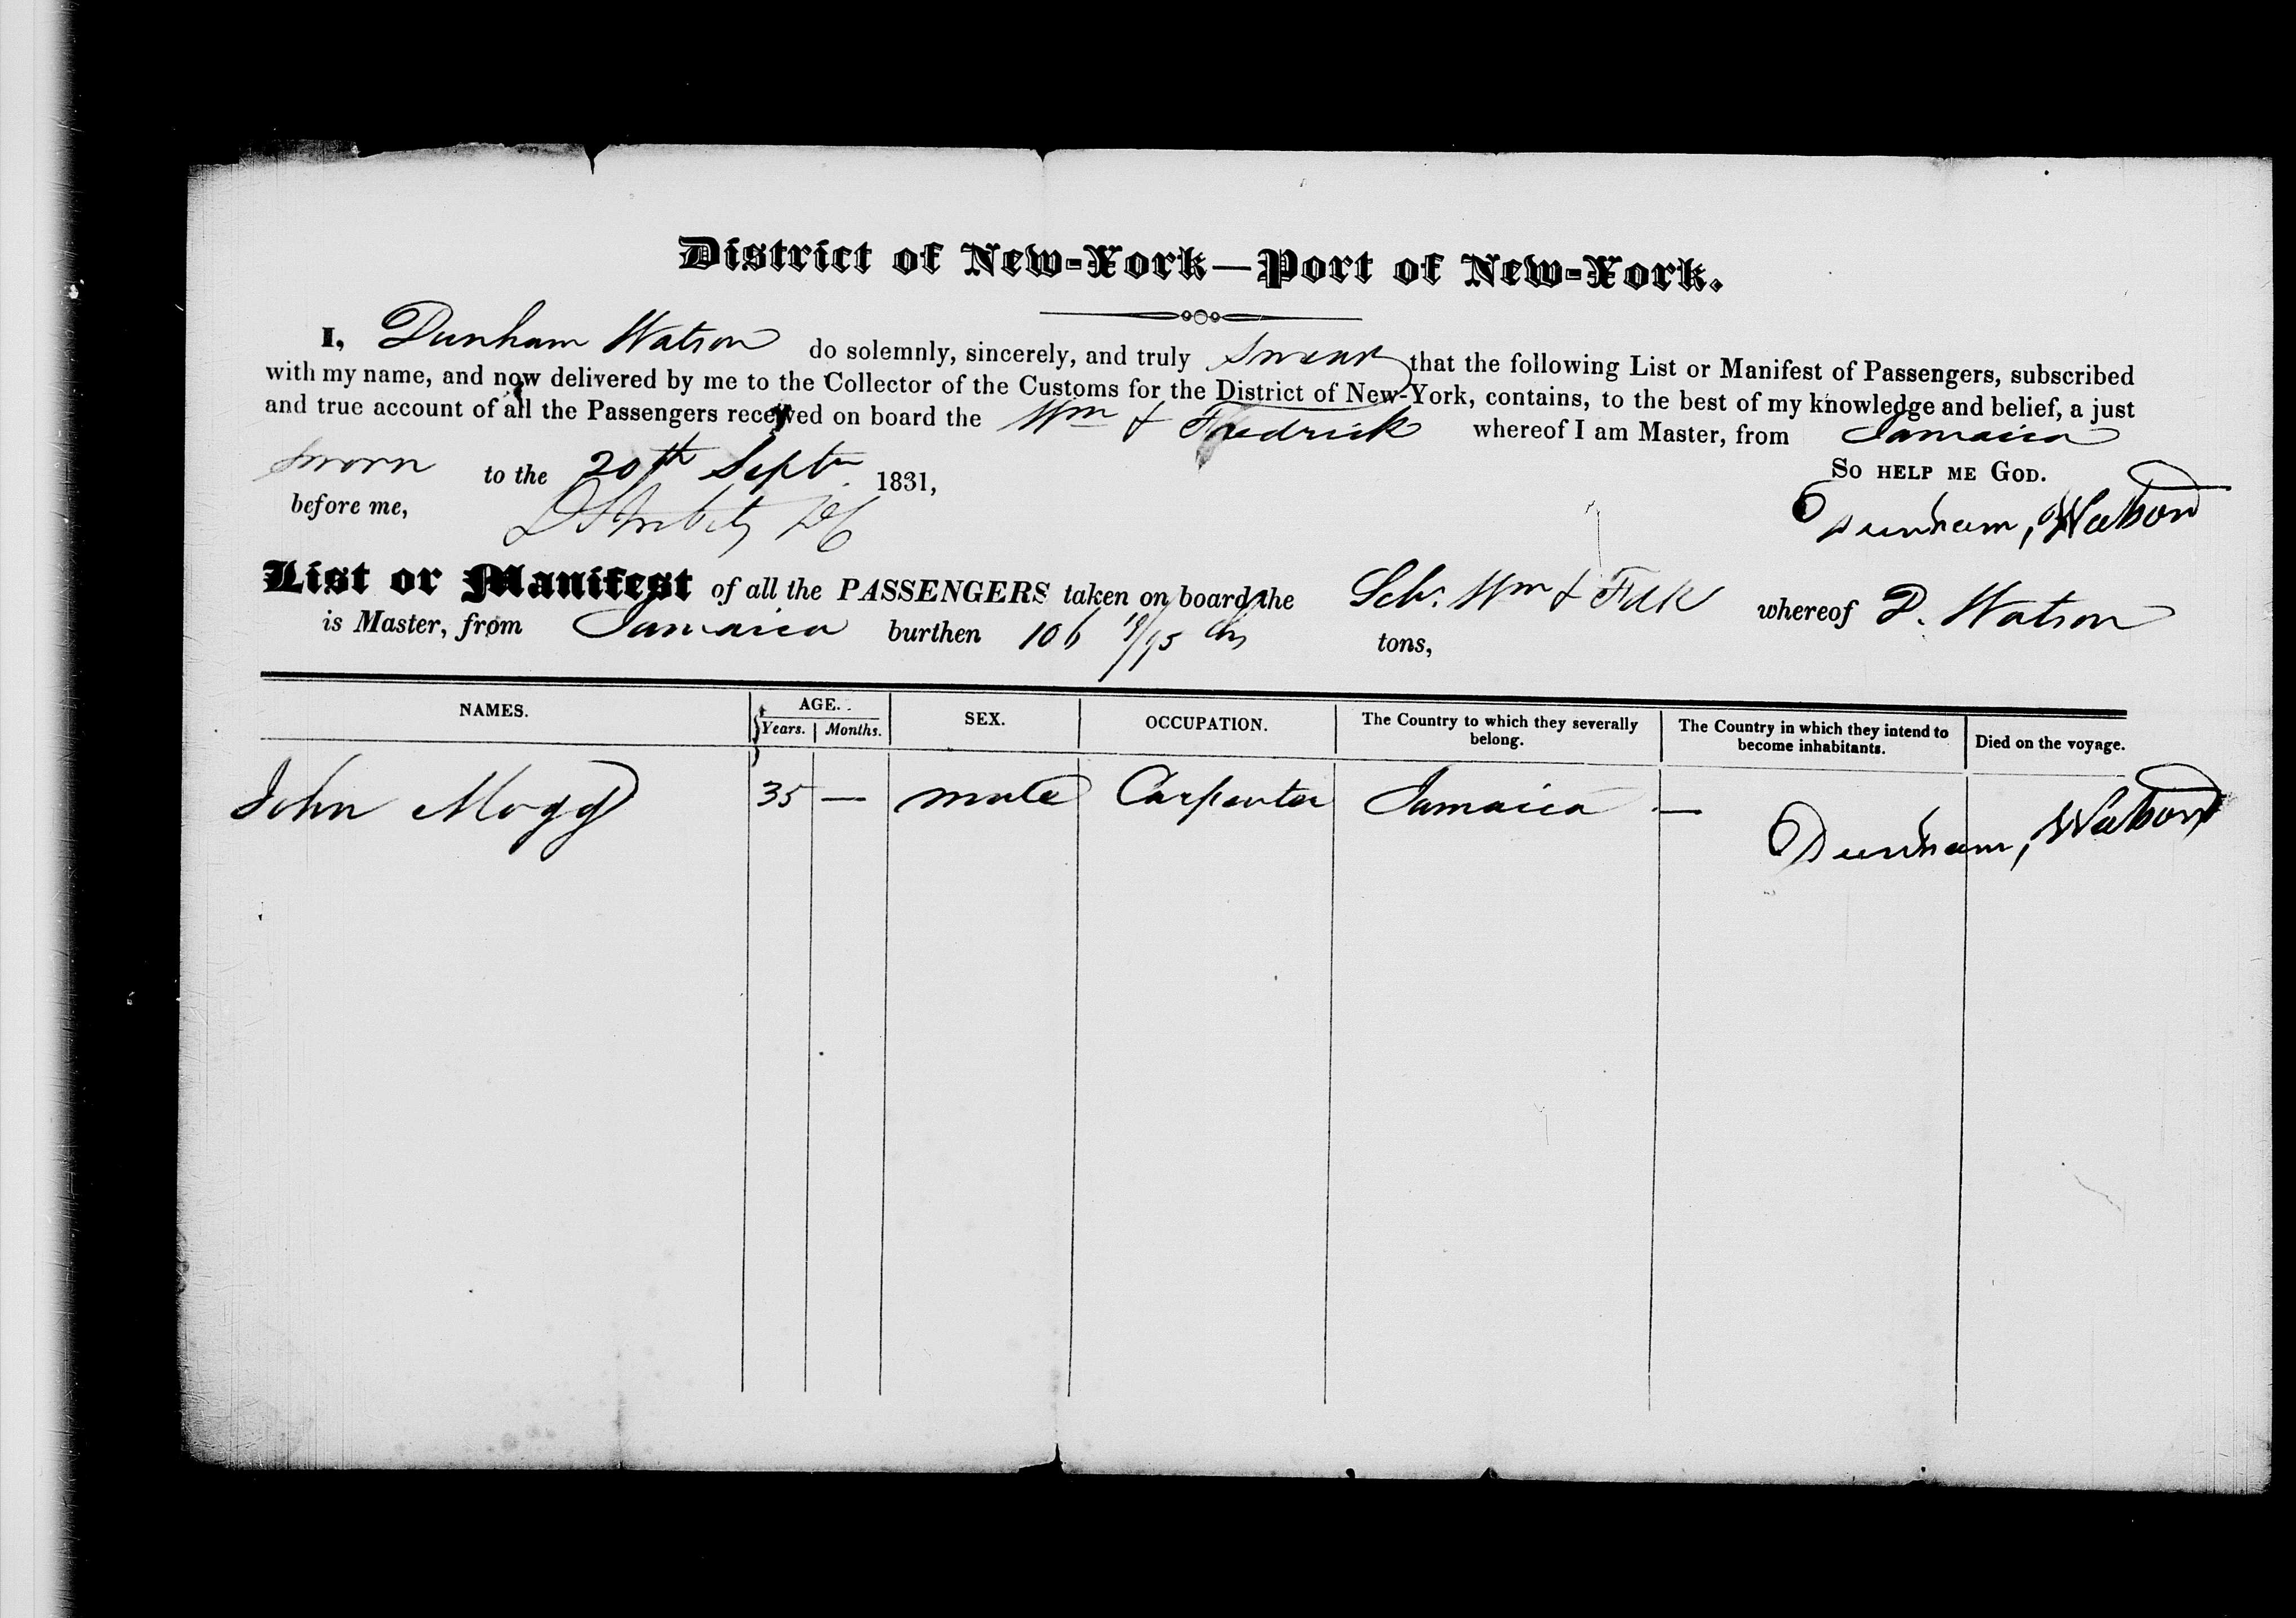 District of New-York—Port of New-York.
I, Dunham Watson do solemnly, sincerely, and truly swear that the following List or Manifest of Passengers, subscribed
with my name, and now delivered by me to the Collector of the Customs for the District of New-York, contains, to the best of my knowledge and belief, a just
and true account of all the Passengers received on board the Wm & Fredrick whereof I am Master, from Jamaica
Sworn to the 20th Sept 1831, So HELP ME GOD.
before me, Dunham, Watson
List or Manifest of all the PASSENGERS taken on board the Schr. Wm & Fdk whereof D. Watson
is Master, from Jamaica burthen 106 /95 tons,
NAMES. AGE. SEX. OCCUPATION. The Country to which they severally belong. The Country in which they intend to become inhabitants. Died on the voyage.
Years. Months.
John Mogg 35 — male Carpenter Jamaica —
Dunham, Watson